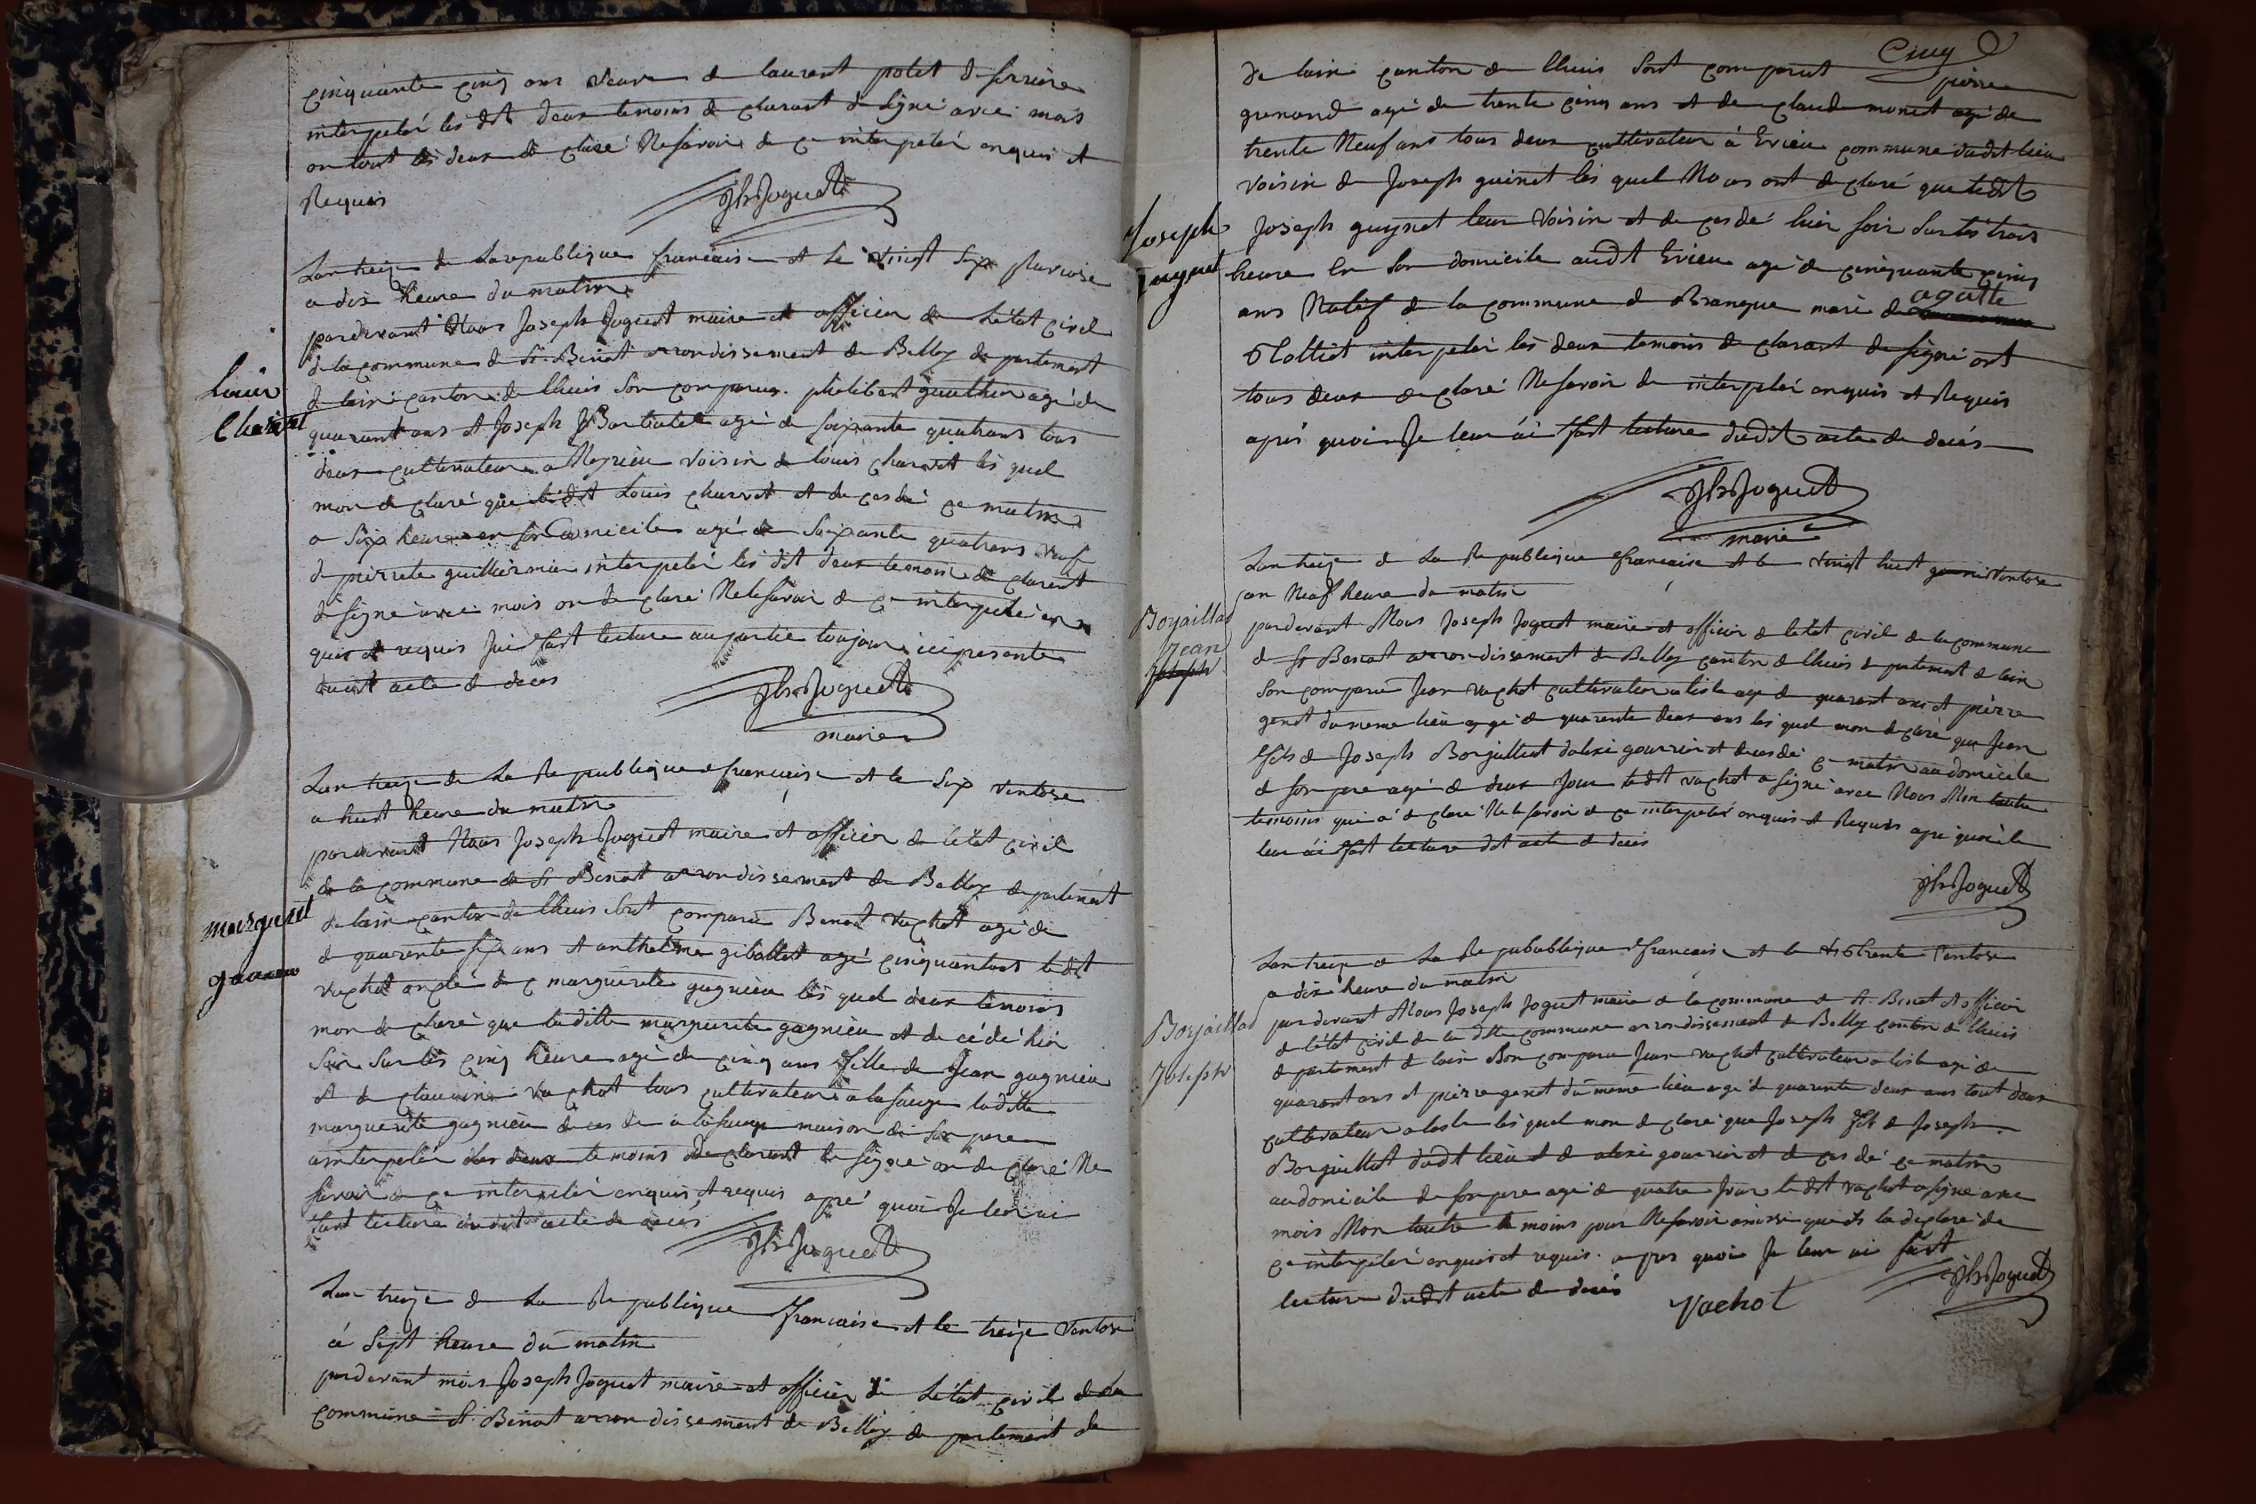 cinquante cinq ans veave de laurent potet de serriere
interpelé les dit deux temoins de clarant de signé avec mois
on tout les deux de claré Ne savoir de ce interpelé enquis et
Requis
Jh Joguet
Lan treize de la republique francaise et le vinst six pluviose
a dix heure du matin
pardevant Nous Joseph Joguet maire et officier de Létat civil
de la commune de St Benoit arrondissement de Belley departement
de lain canton de lhuis Son comparus philibert gauthier agé de
Louis
Charvet
quarant ans et Joseph agé de soixante quatrans tous
deux cultivateur a voisin de louis charvet les quel
mon de claré que ledit Louis charvet et de cesdé ce matin
a six heure en son domicile agé de soixante quatrans
de pierrete guillermin interpelé les dit deux temoin de clarent
de signe avec mois on de claré Ne le savoir de ce interpelé en
quis et requis Jai fait lecture au partie toujour ici presente
dudit acte de deces
Jh Joguet
maire
Lan treize de La Republique francaise et le six ventose
a huit heure du matin
pardevant Nous Joseph Joguet maire et officier de létat civil
de la commune de St Benoit arrondissement de Belley departement
de lain canton de lhuis Sont comparu Benoit vachot agé de
marguerit
de quarente six ans et anthelme giballet agé cinquantans le dit
vachot oncle de marguerite gagnieu les quel deux temoins
mon de claré que la ditte marguerite gagnieu et de cédé hier
soir sur les cinq heure agé de cinq ans fille de Jean gagnieu
et de claudine vachot tous cultivateur a la sauge laditte
marguerite gagnieu de ces de a la sauge maison de son pere
interpelér les deux temoins declarant de signé on de claré Ne
savoir de ce interpelér enquis et requis apré quoi Je leur ai
fait lecture du dit acte de deces
Jh Joguet
Lan treize de La Republique francaise et le treize ventose
a sept heure du matin
pardevant mois Joseph Joguet maire et officier de Létat civil de la
commune St Benoit arrondissement de Belley departement de
Cinq
de lain canton de lhuis Sont comparut pierre
grenand agé de trente cinq ans et de claude monet agé de
trente Neuf ans tous deux cultivateur à Evieu commune dudit lieu
voisin de Joseph guinet les quel Nous ont de claré que ledit
Joseph
guynet
Joseph guynet leur voisin et de cesdé hier soir sur les trois
heure en son domicile audit Evieu agé de cinquante cinq
ans Natif de la commune de Brangue marie de agatte
interpelér les deux temoins de clarant de signé ont
tous deux de claré Ne savoir de interpelé enquis et Requis
apré quoi Je leur ai fait lecture dudit acte de decés
Jh Joguet
maire
Lan treize de La Republique francaise et le vinst huit ventose
an Neuf heure du matin
Borjaillad
Jean
Joseph
pardevant Nous Joseph Joguet maire et officier de létat civil de la commune
de St Benoit arrondissement de Belley canton de lhuis departement de lain
Son comparu Jean vachot cultivateur a liste agé de quarant ans et pierre
genet du meme lieu agé de quarente deux ans les quel mon de claré que Jean
fils de Joseph Borjaillat dalexi gourrin et decesdé ce matin audomicile
de son pere agé de deux Jour ledit vachot a signé avec Nous Mon lautre
temoins qui a de claré Ne le savoir de ce interpelé enquis et Requis apré quoi Je
leur ai fait lecture dit acte de deces
Jh Joguet
Lan treize de La Republique francaise et le trente ventose
a dix heure du matin
Borjaillad
Joseph
pardevant Nous Joseph Joguet maire de la commune de St Benoit et officier
de létat civil de la ditte commune arrondissement de Belley canton de lhuis
departement de lain Son comparu Jean vachot cultivateur a liste agé de
quarant ans et pierre genet du meme lieu agé de quarente deux ans tout deux
cultivateur a liste les quel mon de claré que Joseph fils de Joseph
Borjaillat dudit lieu et de alexi gourrin et de ces dé ce matin
audomicile de son pere agé de quatre Jour le dit vachot a signé avec
mois Mon lautre temoins pour Ne savoir ainsi quil la declaré de
ce interpelér enquis et requis apres quoi Je leur ai fait
lecture dudit acte de deces
Vachot
Jh Joguet